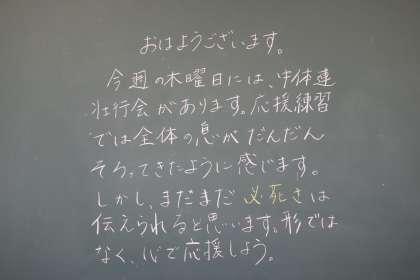 おはようございます。
今週の木曜日には、中体連
壮行会があります。応援練習
では全体の息がだんだん
そろってきたように感じます。
しかし、まだまだ必死さは
伝えられると思います。形では
なく、心で応援しよう。